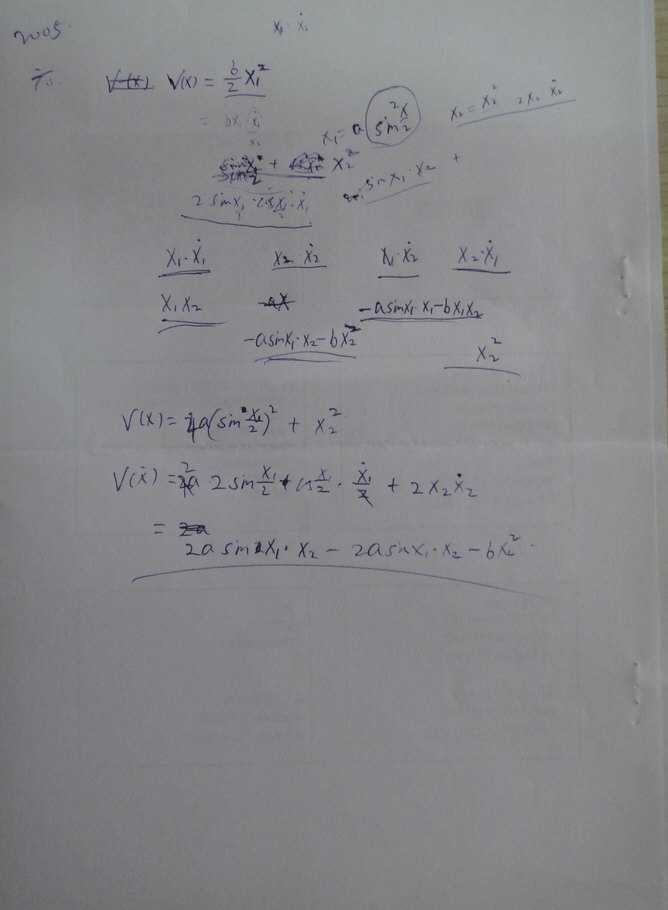 2005
x₁·ẋ₂
六.
V(x) V(x) = b/2 x₁²
= bx₁ ẋ₁
x₂
x₁ = a sin² x/2
x₂ = x₂² 2x₂ ẋ₂
+ x₂²
sin x₁·x₂ +
2 sin x₁/2 · cos x₁/2 · ẋ₁
x₁·ẋ₁ x₂·ẋ₂ x₁·ẋ₂ x₂·ẋ₁
x₁x₂ -asinx₁·x₁-bx₁x₂
-asinx₁·x₂-bx₂² x₂²
V(x) = 4a(sin x₁/2)² + x₂²
V(ẋ) = 2a 2sin x₁/2 · cos x/2 · ẋ₁/2 + 2x₂ẋ₂
= 2a
2a sin x₁·x₂ - 2a sin x₁·x₂ - bx₂².